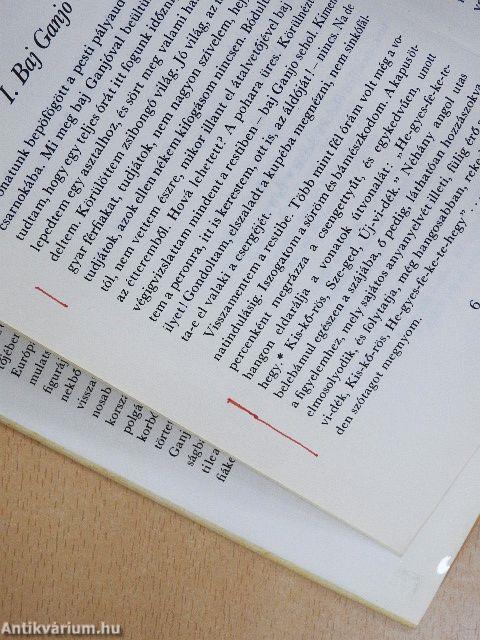 I. Baj Ganjo
onatunk bepöfögött a pesti pályaud
csarnokába. Mi meg baj Ganjóval beültün
tuttam, hogy egy teljes órát itt fogunk időzn
lepedtem egy asztalhoz, és sört meg valami ha
deltem. Körülöttem zsibongó világ. Jó világ, az
gyar férfiakat, tudjátok, nem nagyon szívelem, hej
tudjátok, azok ellen nékem kifogásom nincsen. Bódul
tól, nem vettem észre, mikor illant el átalvetőjével baj
az étteremből. Hová lehetett? A pohara üres. Körülnéz
végigvizslattam mindent a restiben – baj Ganjo sehol. Kimen
tem a peronra, itt is kerestem, ott is, az áldóját! – nincs. Na de
ilyet! Gondoltam, elszaladt a kupéba megnézni, nem sinkófál-
ta-e el valaki a csergéjét.
Visszamentem a restibe. Több mint fél órám volt még a vo-
natindulásig. Iszogatom a söröm és bámészkodom. A kapusöt-
percenként megrázza a csengettyűt, és egykedvűen, unott
hangon eldarálja a vonatok útvonalát: „He-gyes-fe-ke-te-
hegy.* Kis-kő-rös, Sze-ged, Új-vi-dék." Néhány angol utas
belebámul egészen a szájába, ő pedig, láthatóan hozzászokva
a figyelemhez, mely sajátos anyanyelvét illeti, fülig érő
elmosolyodik, és folytatja, még hangosabban, reke
vi-dék, Kis-kő-rös, He-gyes-fe-ke-te-hegy"
den szótagot megnyom.
6
őjében
Európ
mulats
figuráj
nekből
vissza
nosab
korsz
polgá
korbó
törté
Ganj
ságba
tilea
fiáke
Antikvárium.hu